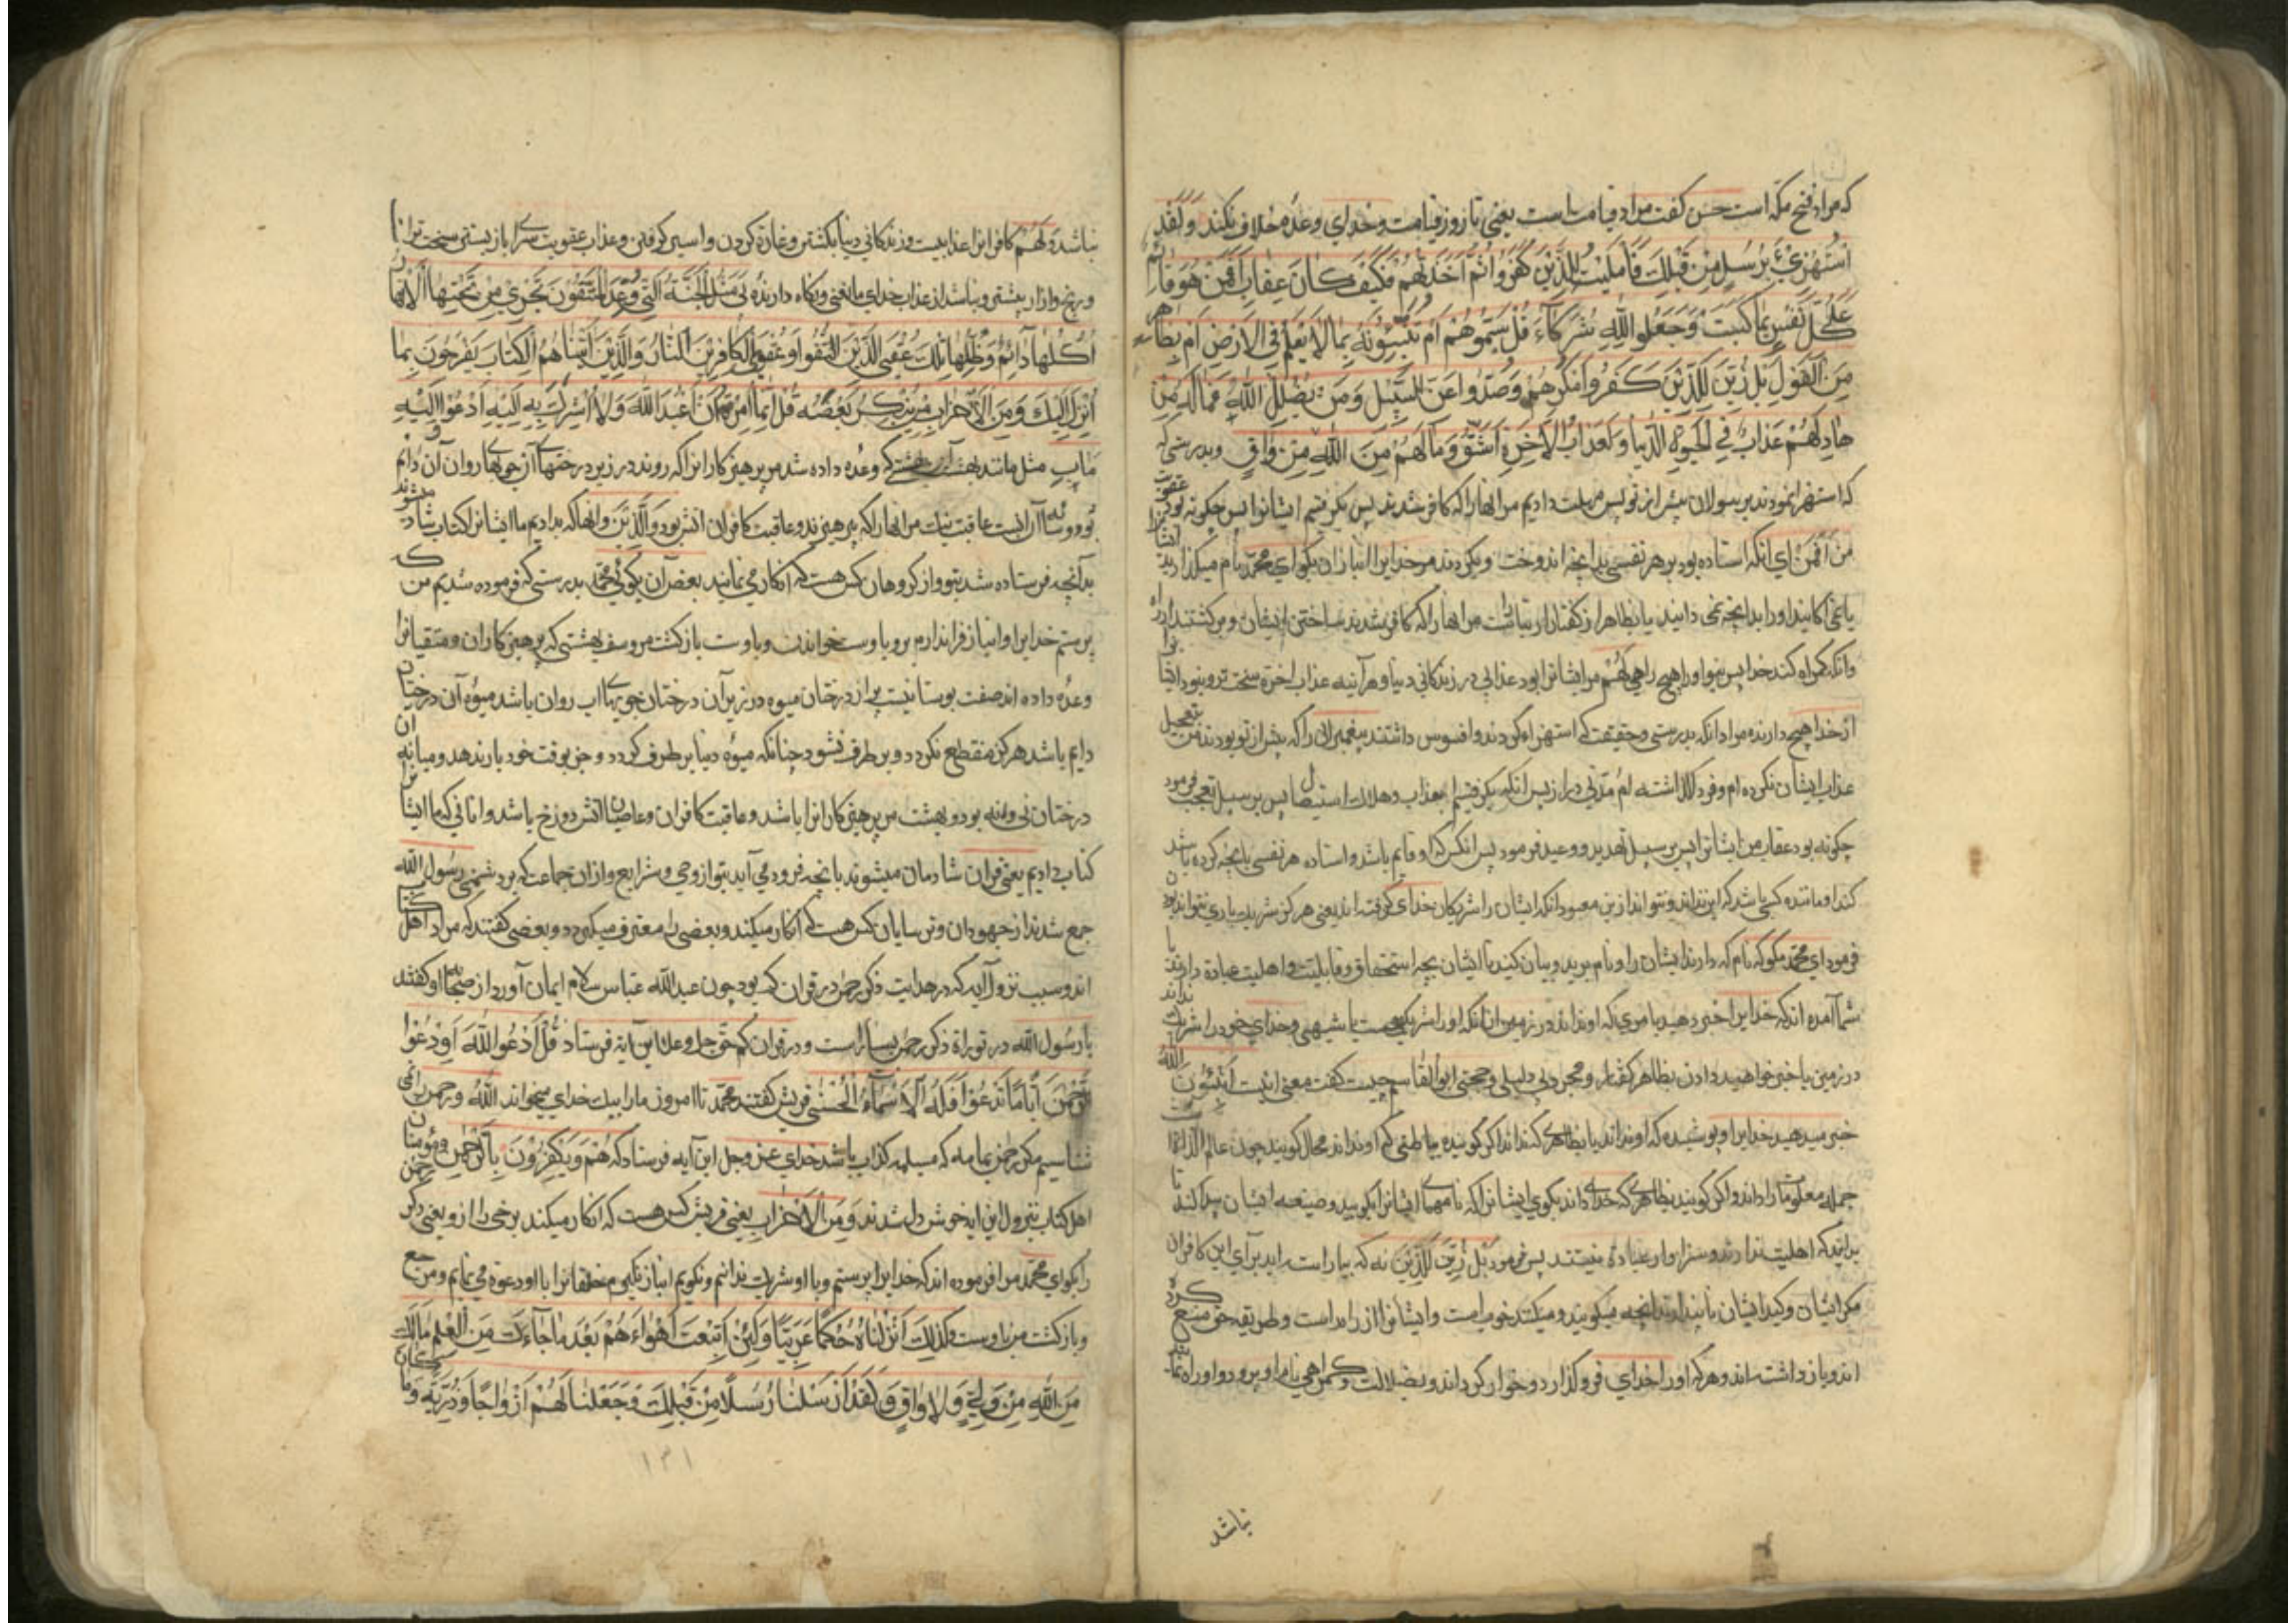 که مراد فتح مکه است حسن گفت مراد قیامت است یعنی تا روز قیامت و خدای وعده خلاف نکند وَلَقَدِ
اسْتُهْزِئَ بِرُسُلٍ مِنْ قَبْلِكَ فَأَمْلَيْتُ لِلَّذِينَ كَفَرُوا ثُمَّ أَخَذْتُهُمْ فَكَيْفَ كَانَ عِقَابِ أَفَمَنْ هُوَ قَائِمٌ
عَلَى كُلِّ نَفْسٍ بِمَا كَسَبَتْ وَجَعَلُوا لِلَّهِ شُرَكَاءَ قُلْ سَمُّوهُمْ أَمْ تُنَبِّئُونَهُ بِمَا لَا يَعْلَمُ فِي الْأَرْضِ أَمْ بِظَاهِرٍ
مِنَ الْقَوْلِ بَلْ زُيِّنَ لِلَّذِينَ كَفَرُوا مَكْرُهُمْ وَصَدُّوا عَنِ السَّبِيلِ وَمَنْ يُضْلِلِ اللَّهُ فَمَا لَهُ مِنْ
هَادٍ لَهُمْ عَذَابٌ فِي الْحَيَوةِ الدُّنْيَا وَلَعَذَابُ الْآخِرَةِ أَشَقُّ وَمَا لَهُمْ مِنَ اللَّهِ مِنْ وَاقٍ وبدرستی که
که استهزا نمودند برسولان پیش از تو پس مهلت دادیم مر انها را که کافر شدند پس بکرفتیم ایشانرا پس چکونه بود عقوبت
من أَفَمَنْ ای انکه استاده بود بر هر نفسی بدانچه اندوخت و بکردند مر خدایرا انبازان بکو ای محمد نام میکنید
یا می اکانید او را بدانچه نمی دانید یا بظاهر از کفتار ارتیاست مر انها را که کافر شدند ساختن ایشان و برکشتند از راه
وانکه کمراه کند خدا پس نبود او را هیچ راهی لَهُمْ مر ایشانرا بود عذابی در زندکانی دنیا و هر آئینه عذاب اخرة سخت تر و نبود ایشانرا
از خدا هیچ دارنده مراد انکه بدرستی و حقیقت که استهزاء کردند و افسوس داشتند پیغمبرانرا که پیش از تو بودند من تعجیل
عذاب ایشان نکرده ام و فرو کذاشته ام مدتی دراز پس انکه بکرفتیم بعذاب و هلاک استیصال پس بر سبیل تعجب فرمود
چکونه بود عقاب من ایشانرا پس بر سبیل تهدید و وعید فرمود پس انکس که او قایم باشد و استاده هر نفسی بانچه کرده باشد
کند او مانند کسی باشد که این نداند و نتواند از بن معبود انکه ایشان را شریکان خدای کرفته اند یعنی هرکز شریک باری نتواند بود
فرمود ای محمد بکو که نام که دارند ایشان را و نام برید و بیان کنید تا ایشان بچه استحقاق و قابلیت و اهلیت عبادة دارند یا
شما آمده اند که خدایرا خبر دهید بامری که او نداند در زمین از انکه او را شریکی هست یا شبیهی و خدای خود را شریک نداند
در زمین یا خبر خواهید دادن بظاهر کفتار و مجرد بی دلیلی و حجتی ابوالقاسم چیست کفت معنی اینست أَتُنَبِّئُونَ اللَّهَ
خبر میدهید خدایرا و پوشیده که او نداند یا بظاهری کند اند اکر کوینده باطنی که او نداند محال کویند چون عالم الذات
جمله معلومات را داند و اکر کویند بظاهری که خدای داند بکوی ایشانرا که نامهای ایشانرا بکویید و صیغه ایشان پیدا کنید تا
بدانید که اهلیت ندارند و سزاوار عبادة نیستند پس فرمود بَلْ زُيِّنَ لِلَّذِينَ نه که بیاراسته اید برای این کافران
مکر ایشان و کید ایشان تا پنداشتند انچه میکویند و میکنند خوبست و ایشانرا از راه راست و طریقه حق منع کرده
اند و باز داشته اند و هر که او را خدای فرو کذارد و خوار کرداند و بضلالت و کمراهی نام او برد او را راه نماینده
نباشد
نباشد وَلَهُمْ کافرانرا عذابیست در زندکانی دنیا بکشتن و غارة کردن و اسیر کرفتن و عذاب عقوبت سرای باز پسین سخت تر از
و رنج و ازار بیشتر و نباشد از عذاب خدای مانعی و نکاه دارنده ئی مَثَلُ الْجَنَّةِ الَّتِي وُعِدَ الْمُتَّقُونَ تَجْرِي مِنْ تَحْتِهَا الْأَنْهَارُ
أُكُلُهَا دَائِمٌ وَظِلُّهَا تِلْكَ عُقْبَى الَّذِينَ اتَّقَوْا وَعُقْبَى الْكَافِرِينَ النَّارُ وَالَّذِينَ آتَيْنَاهُمُ الْكِتَابَ يَفْرَحُونَ بِمَا
أُنْزِلَ إِلَيْكَ وَمِنَ الْأَحْزَابِ مَنْ يُنْكِرُ بَعْضَهُ قُلْ إِنَّمَا أُمِرْتُ أَنْ أَعْبُدَ اللَّهَ وَلَا أُشْرِكَ بِهِ إِلَيْهِ أَدْعُوا وَإِلَيْهِ
مَآبِ مثل مانند بهشت آن بهشتی که وعده داده شد مر پرهیزکارانرا که روند در زیر درختهای آن جویهای روان آن دایم
بود و سایه آن اینست عاقبت نیک مر انها را که پرهیزند و عاقبت کافران اتش بود وَالَّذِينَ و انها که بدادیم ما ایشانرا کتاب شاد میشوند
بدآنچه فرستاده شد بتو و از کروهان کس هست که انکار می نمایند بعض آن بکو ای محمد بدرستی که فرموده شدیم من که
پرستم خدایرا و انباز فرا ندارم برو باوست خواندن و باوست بازکشت مر وصف بهشتی که پرهیزکاران و متقیانرا
وعده داده اند صفت بوستانیست پر از درختان میوه در زیر آن درختان جویهای اب روان باشد میوه آن درختان
دایم باشد هرکز منقطع نکردد و بر طرف نشود چنانکه میوه دنیا بر طرف کردد و جز بوقت خود بار ندهد و میانه ان
درختان نی ولمه بود و بهشت مر پرهیزکارانرا باشد و عاقبت کافران و عاصیان اتش دوزخ باشد و انانی که ما ایشانرا
کتاب دادیم یعنی قران شادمان میشوند بانچه فرود می آید بتو از وحی و شرایع و ازان جماعت که بر دشمنی رسول الله
جمع شدند از جهودان و ترسایان کس هست که انکار میکند و بعضی را معترف میکردد و بعضی کفتند که مراد اهل کتاب
اند و سبب نزول آیه که در هدایت ذکر رحمن در قران کم بود چون عبدالله عباس سلام ایمان آورد از صحابه او کفتند
یا رسول الله در توراة ذکر رحمن بسیار است و در قران کم حق جل وعلا این آیة فرستاد قُلِ ادْعُوا اللَّهَ أَوِ ادْعُوا
الرَّحْمَنَ أَيًّا مَا تَدْعُوا فَلَهُ الْأَسْمَاءُ الْحُسْنَى قریش کفتند محمد تا امروز ما را بیک خدای میخواند الله و رحمن را نمی
شناسیم مکر رحمن یمامه که مسیلمه کذاب باشد خدای عز وجل این آیه فرستاد که هُمْ وَيَكْفُرُونَ بِالرَّحْمَنِ و مؤمنان
اهل کتاب بنزول این ایه خوش دل شدند وَمِنَ الْأَحْزَابِ یعنی قریش کس هست که انکار میکند برخی را ازو یعنی ذکر رحمن
را بکو ای محمد مرا فرموده اند که خدایرا پرستم و با او شریک ندانم و نکویم انباز نکیرم خلقانرا با او دعوة می نمایم و مرجع
و بازکشت من باوست وَكَذَلِكَ أَنْزَلْنَاهُ حُكْمًا عَرَبِيًّا وَلَئِنِ اتَّبَعْتَ أَهْوَاءَهُمْ بَعْدَ مَا جَاءَكَ مِنَ الْعِلْمِ مَا لَكَ
مِنَ اللَّهِ مِنْ وَلِيٍّ وَلَا وَاقٍ وَلَقَدْ أَرْسَلْنَا رُسُلًا مِنْ قَبْلِكَ وَجَعَلْنَا لَهُمْ أَزْوَاجًا وَذُرِّيَّةً وَمَا كَانَ